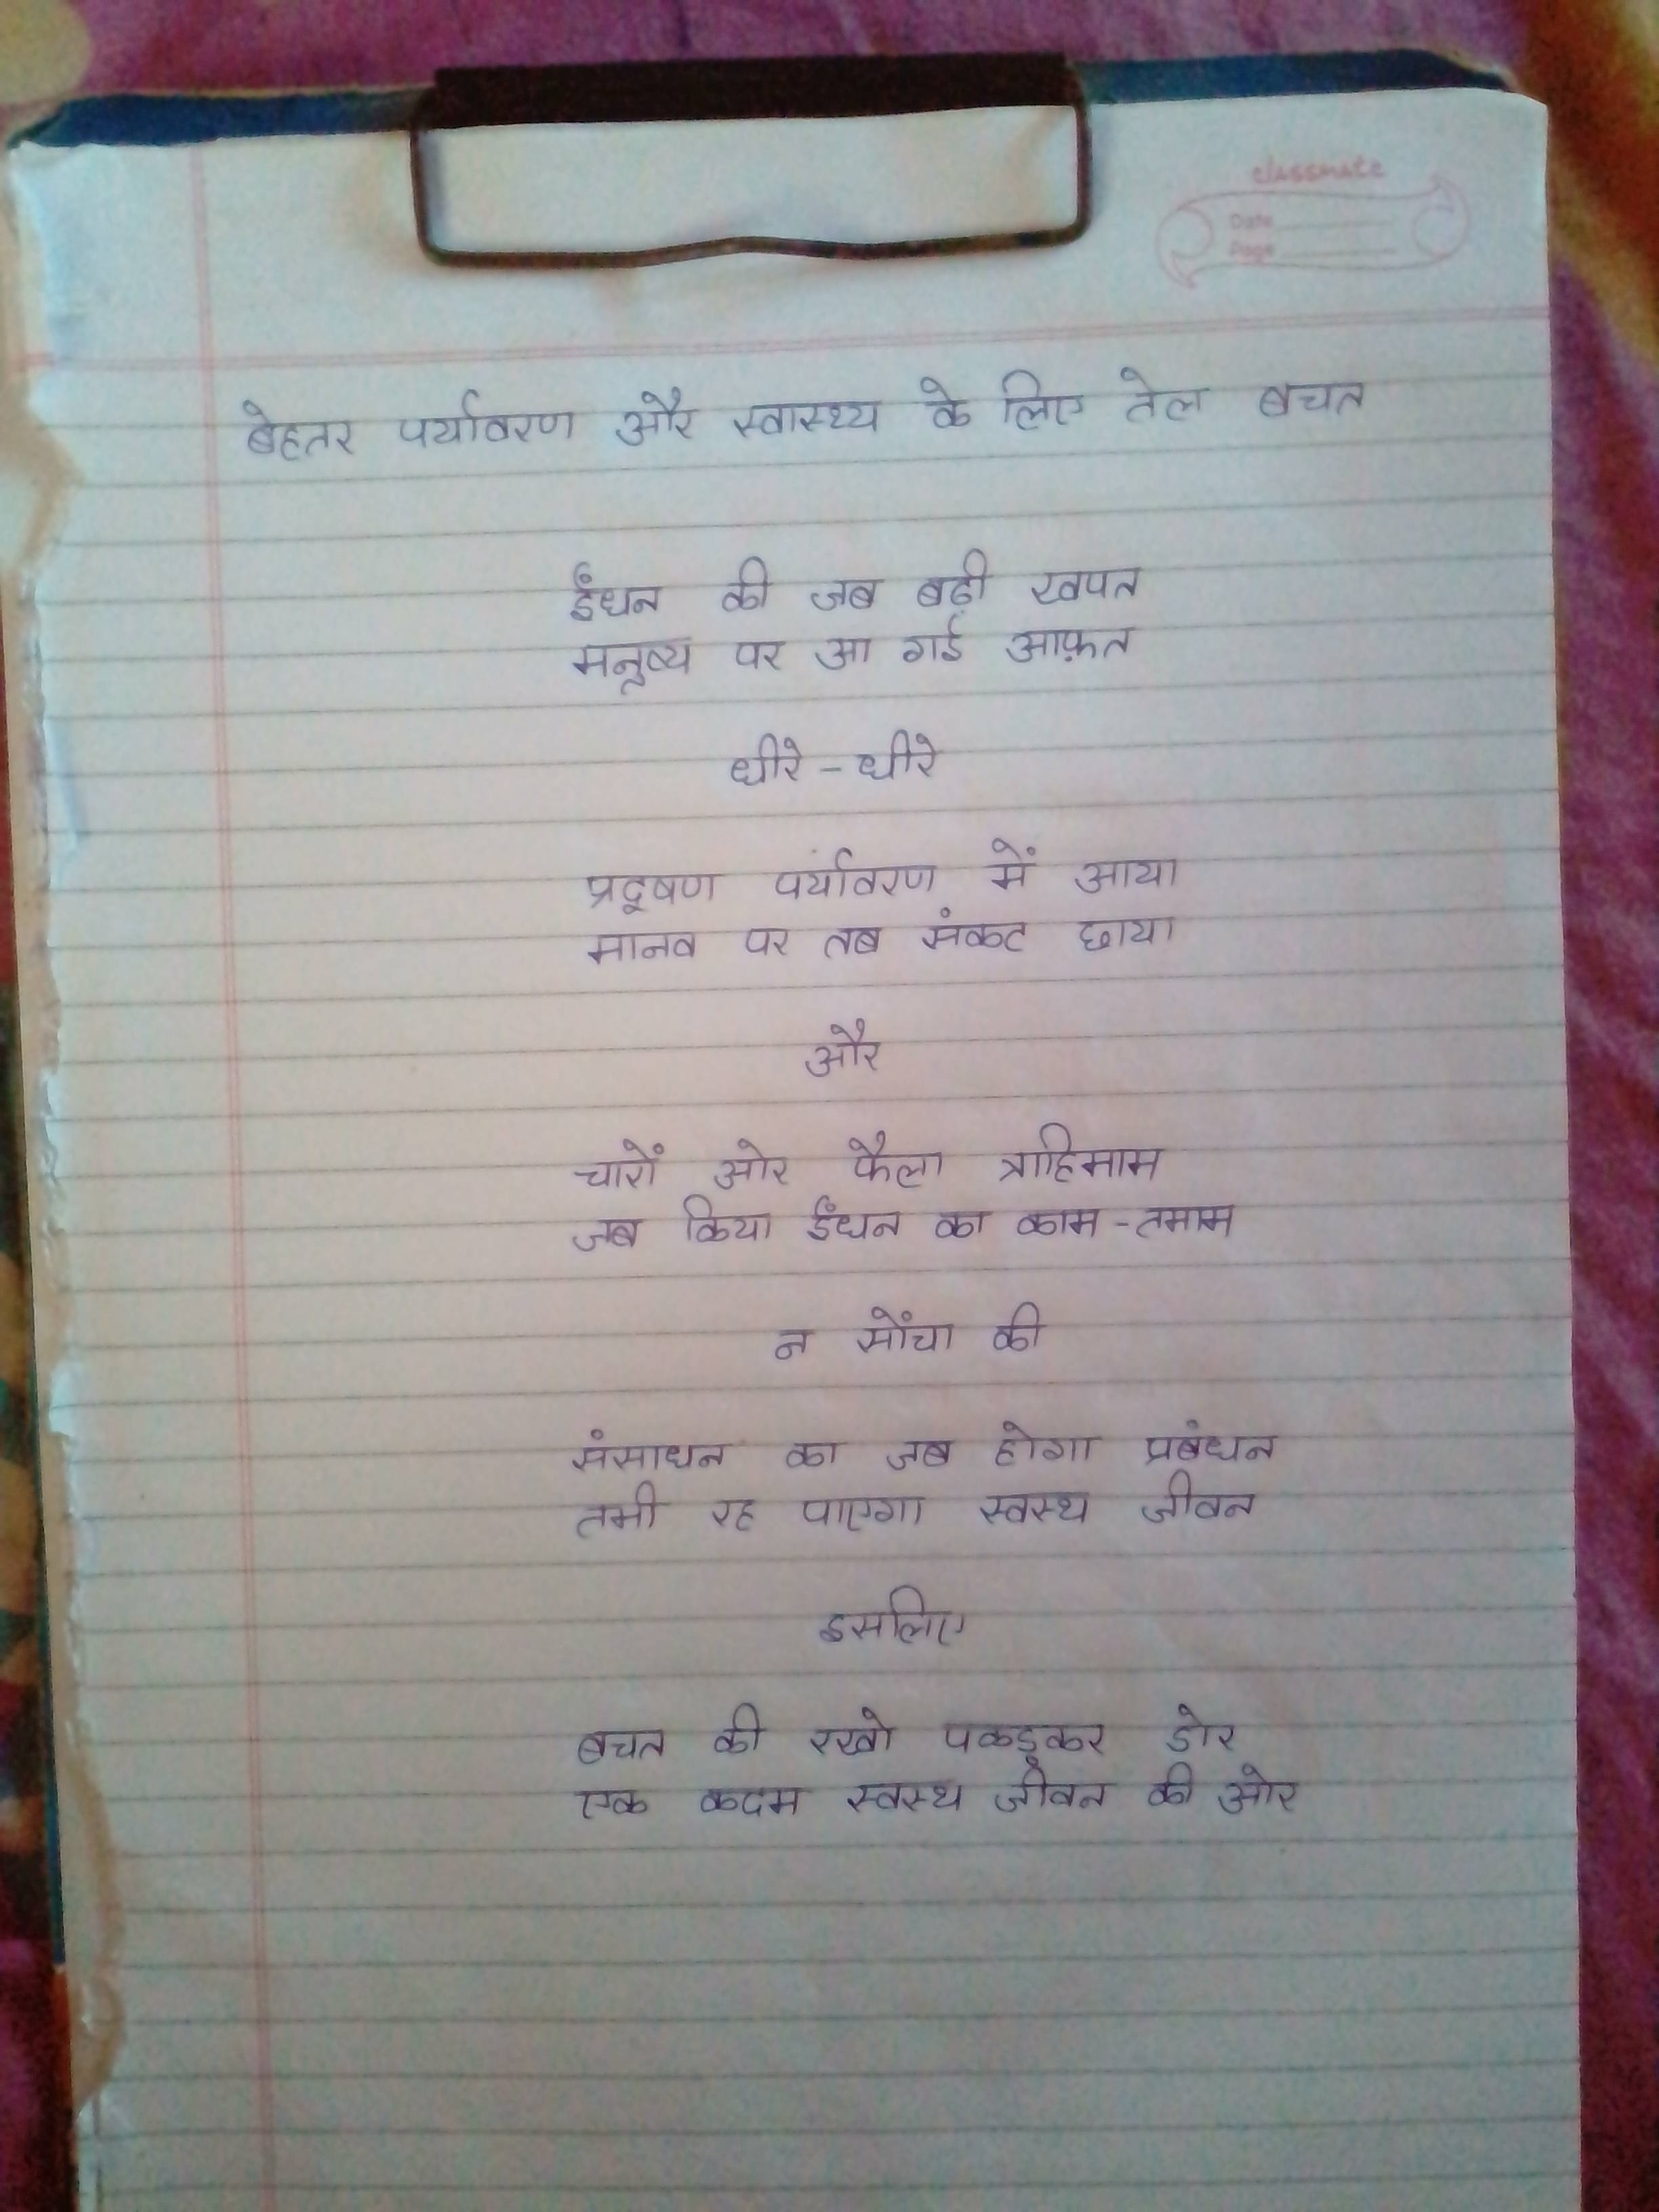 classmate
Date
Page
बेहतर पर्यावरण और स्वास्थ्य के लिए तेल बचत
ईंधन की जब बढ़ी खपत
मनुष्य पर आ गई आफ़त
धीरे - धीरे
प्रदूषण पर्यावरण में आया
मानव पर तब संकट छाया
और
चारों ओर फैला त्राहिमाम
जब किया ईंधन का काम - तमाम
न सोंचा की
संसाधन का जब होगा प्रबंधन
तभी रह पाएगा स्वस्थ जीवन
इसलिए
बचत की रखो पकड़कर डोर
एक कदम स्वस्थ जीवन की ओर